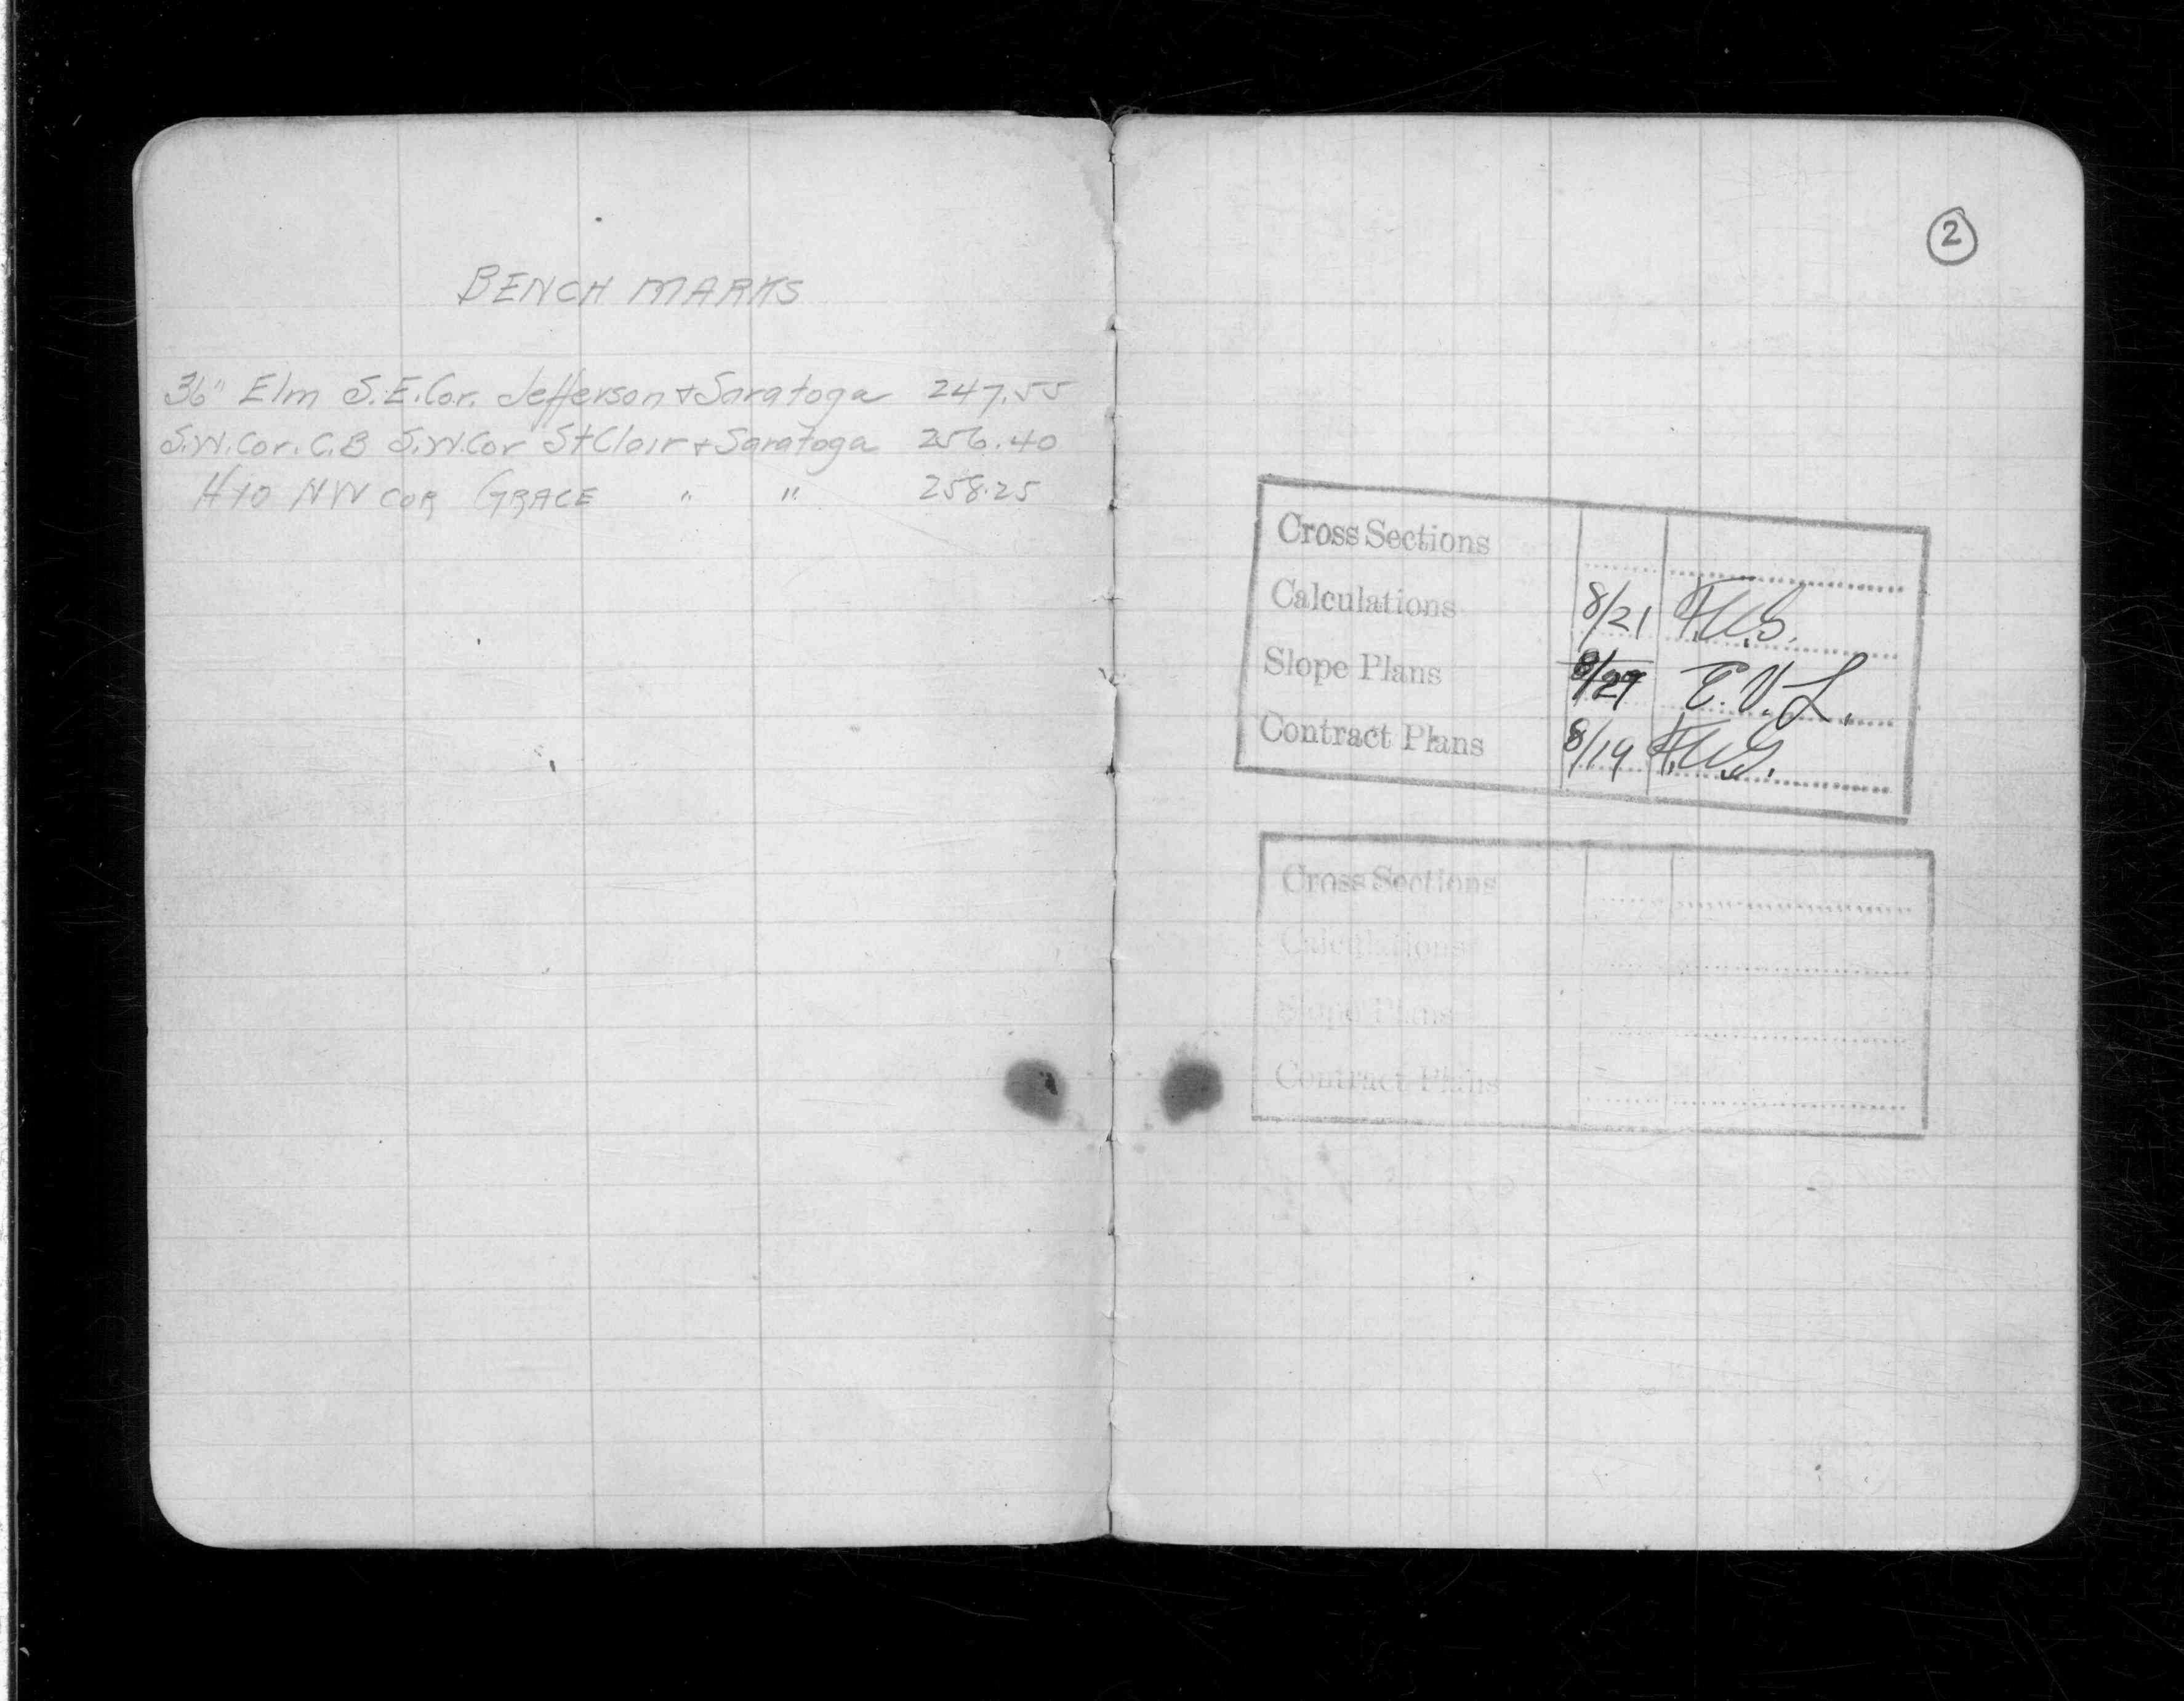 BENCH MARKS
36" Elm S.E.Cor. Jefferson & Saratoga 247.55
S.W.Cor. C.B S.W.Cor St Clair & Saratoga 256.40
HYD NW COR GRACE " " 258.25
2
Cross Sections
Calculations 8/21
Slope Plans E.V.L.
Contract Plans 8/19
Cross Sections
Calculations
Slope Plans
Contract Plans